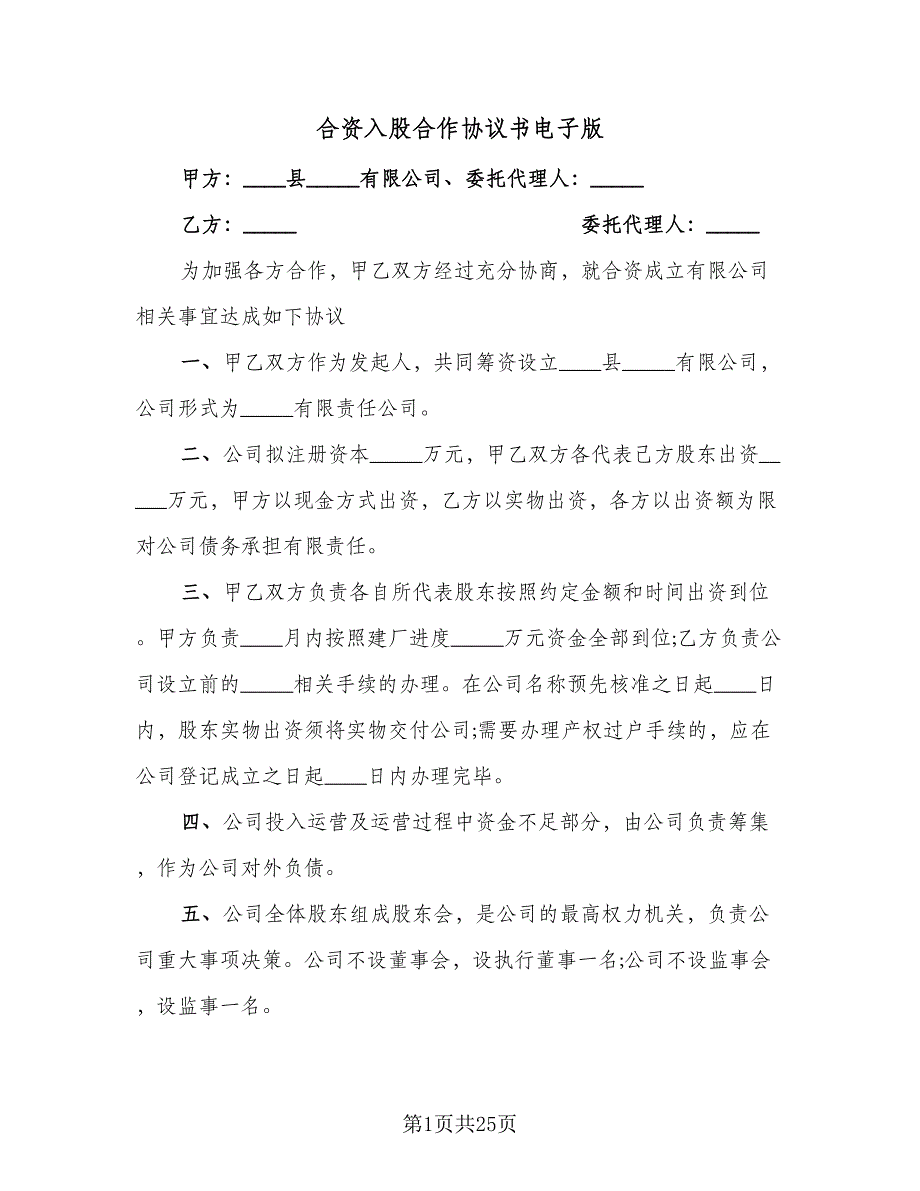 合资入股合作协议书电子版
甲方：____县_____有限公司、委托代理人：_____
乙方：_____ 委托代理人：_____
为加强各方合作，甲乙双方经过充分协商，就合资成立有限公司
相关事宜达成如下协议
一、甲乙双方作为发起人，共同筹资设立____县_____有限公司，
公司形式为_____有限责任公司。
二、公司拟注册资本_____万元，甲乙双方各代表己方股东出资__
___万元，甲方以现金方式出资，乙方以实物出资，各方以出资额为限
对公司债务承担有限责任。
三、甲乙双方负责各自所代表股东按照约定金额和时间出资到位
。甲方负责____月内按照建厂进度_____万元资金全部到位;乙方负责公
司设立前的_____相关手续的办理。在公司名称预先核准之日起____日
内，股东实物出资须将实物交付公司;需要办理产权过户手续的，应在
公司登记成立之日起____日内办理完毕。
四、公司投入运营及运营过程中资金不足部分，由公司负责筹集
，作为公司对外负债。
五、公司全体股东组成股东会，是公司的最高权力机关，负责公
司重大事项决策。公司不设董事会，设执行董事一名;公司不设监事会
，设监事一名。
第1页共25页